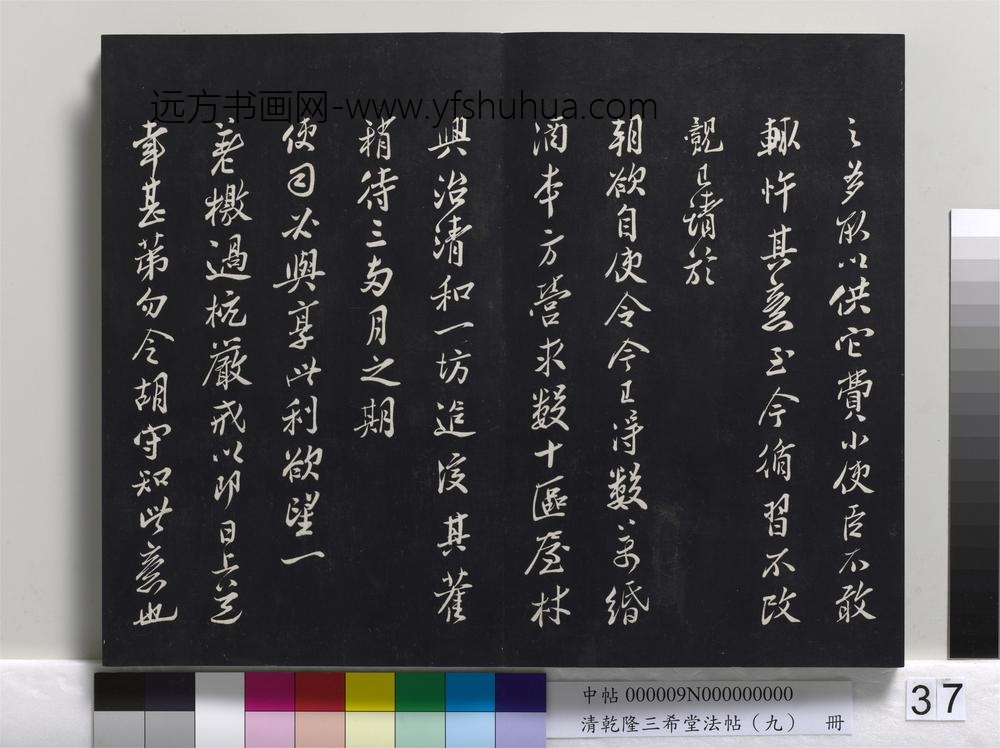 远方书画网-www.yfshuhua.com
之多取以供它費小使臣不敢
輒忤其意至今循習不改
覲已請於
朝欲自使令今已淨數萬緡
酒本方營求數十區屋材
與治清和一坊造沒其舊
稍待三兩月之期
使司必興享此利欲望一
老檄過杭嚴戒以即日上道
幸甚第勿令胡守知此意也
中帖 000009N000000000
清乾隆三希堂法帖（九） 冊
37